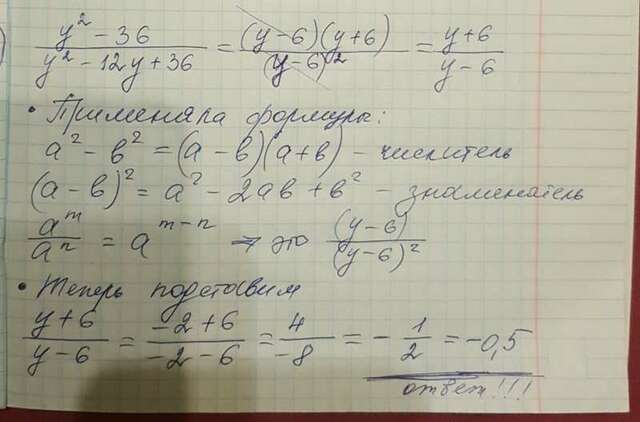 y² - 36 / y² - 12y + 36 = (y - 6)(y + 6) / (y - 6)² = y + 6 / y - 6
• Применяла формулы:
a² - в² = (a - в)(a + в) - числитель
(a - в)² = a² - 2ав + в² - знаменатель
aᵐ / aⁿ = aᵐ⁻ⁿ ⇒ это (y - 6) / (y - 6)²
• Теперь подставим
y + 6 / y - 6 = -2 + 6 / -2 - 6 = 4 / -8 = - 1 / 2 = -0,5
ответ!!!